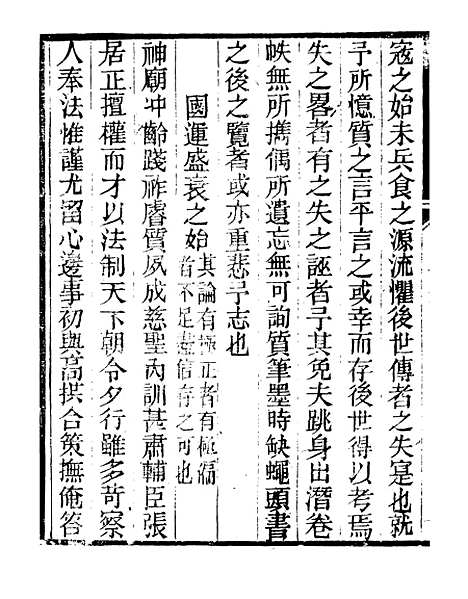 寇之始末兵食之源流懼後世傳者之失寔也就
予所憶質之言平言之或幸而存後世得以考焉
失之畧者有之失之誣者予其免夫跳身出潛卷
帙無所擕偶所遺忘無可詢質筆墨時缺蠅頭書
之後之覽者或亦重悲予志也
國運盛衰之始其論有極正者有極漏
者不足盡信存之可也
神廟冲齡踐祚睿質夙成慈聖內訓甚肅輔臣張
居正擅權而才以法制天下朝令夕行雖多苛察
人奉法惟謹尤留心邊事初與高拱合策撫俺答